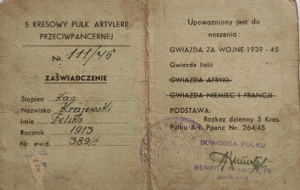 5 KRESOWY PUŁK ARTYLERII
PRZECIWPANCERNEJ
Nr. 111/46
ZAŚWIADCZENIE
Stopień Kan.
Nazwisko Krajewski
Imię Feliks
Rocznik 1913
Nr. ewid. 389/
Upoważniony jest do
noszenia:
GWIAZDA ZA WOJNĘ 1939 - 45
Gwiazda Italii
GWIAZDA AFRYKI
GWIAZDA NIEMIEC I FRANCJI
PODSTAWA:
Rozkaz dzienny 5 Kres.
Pułku Art. Ppanc Nr. 264/45
DOWÓDCA PUŁKU